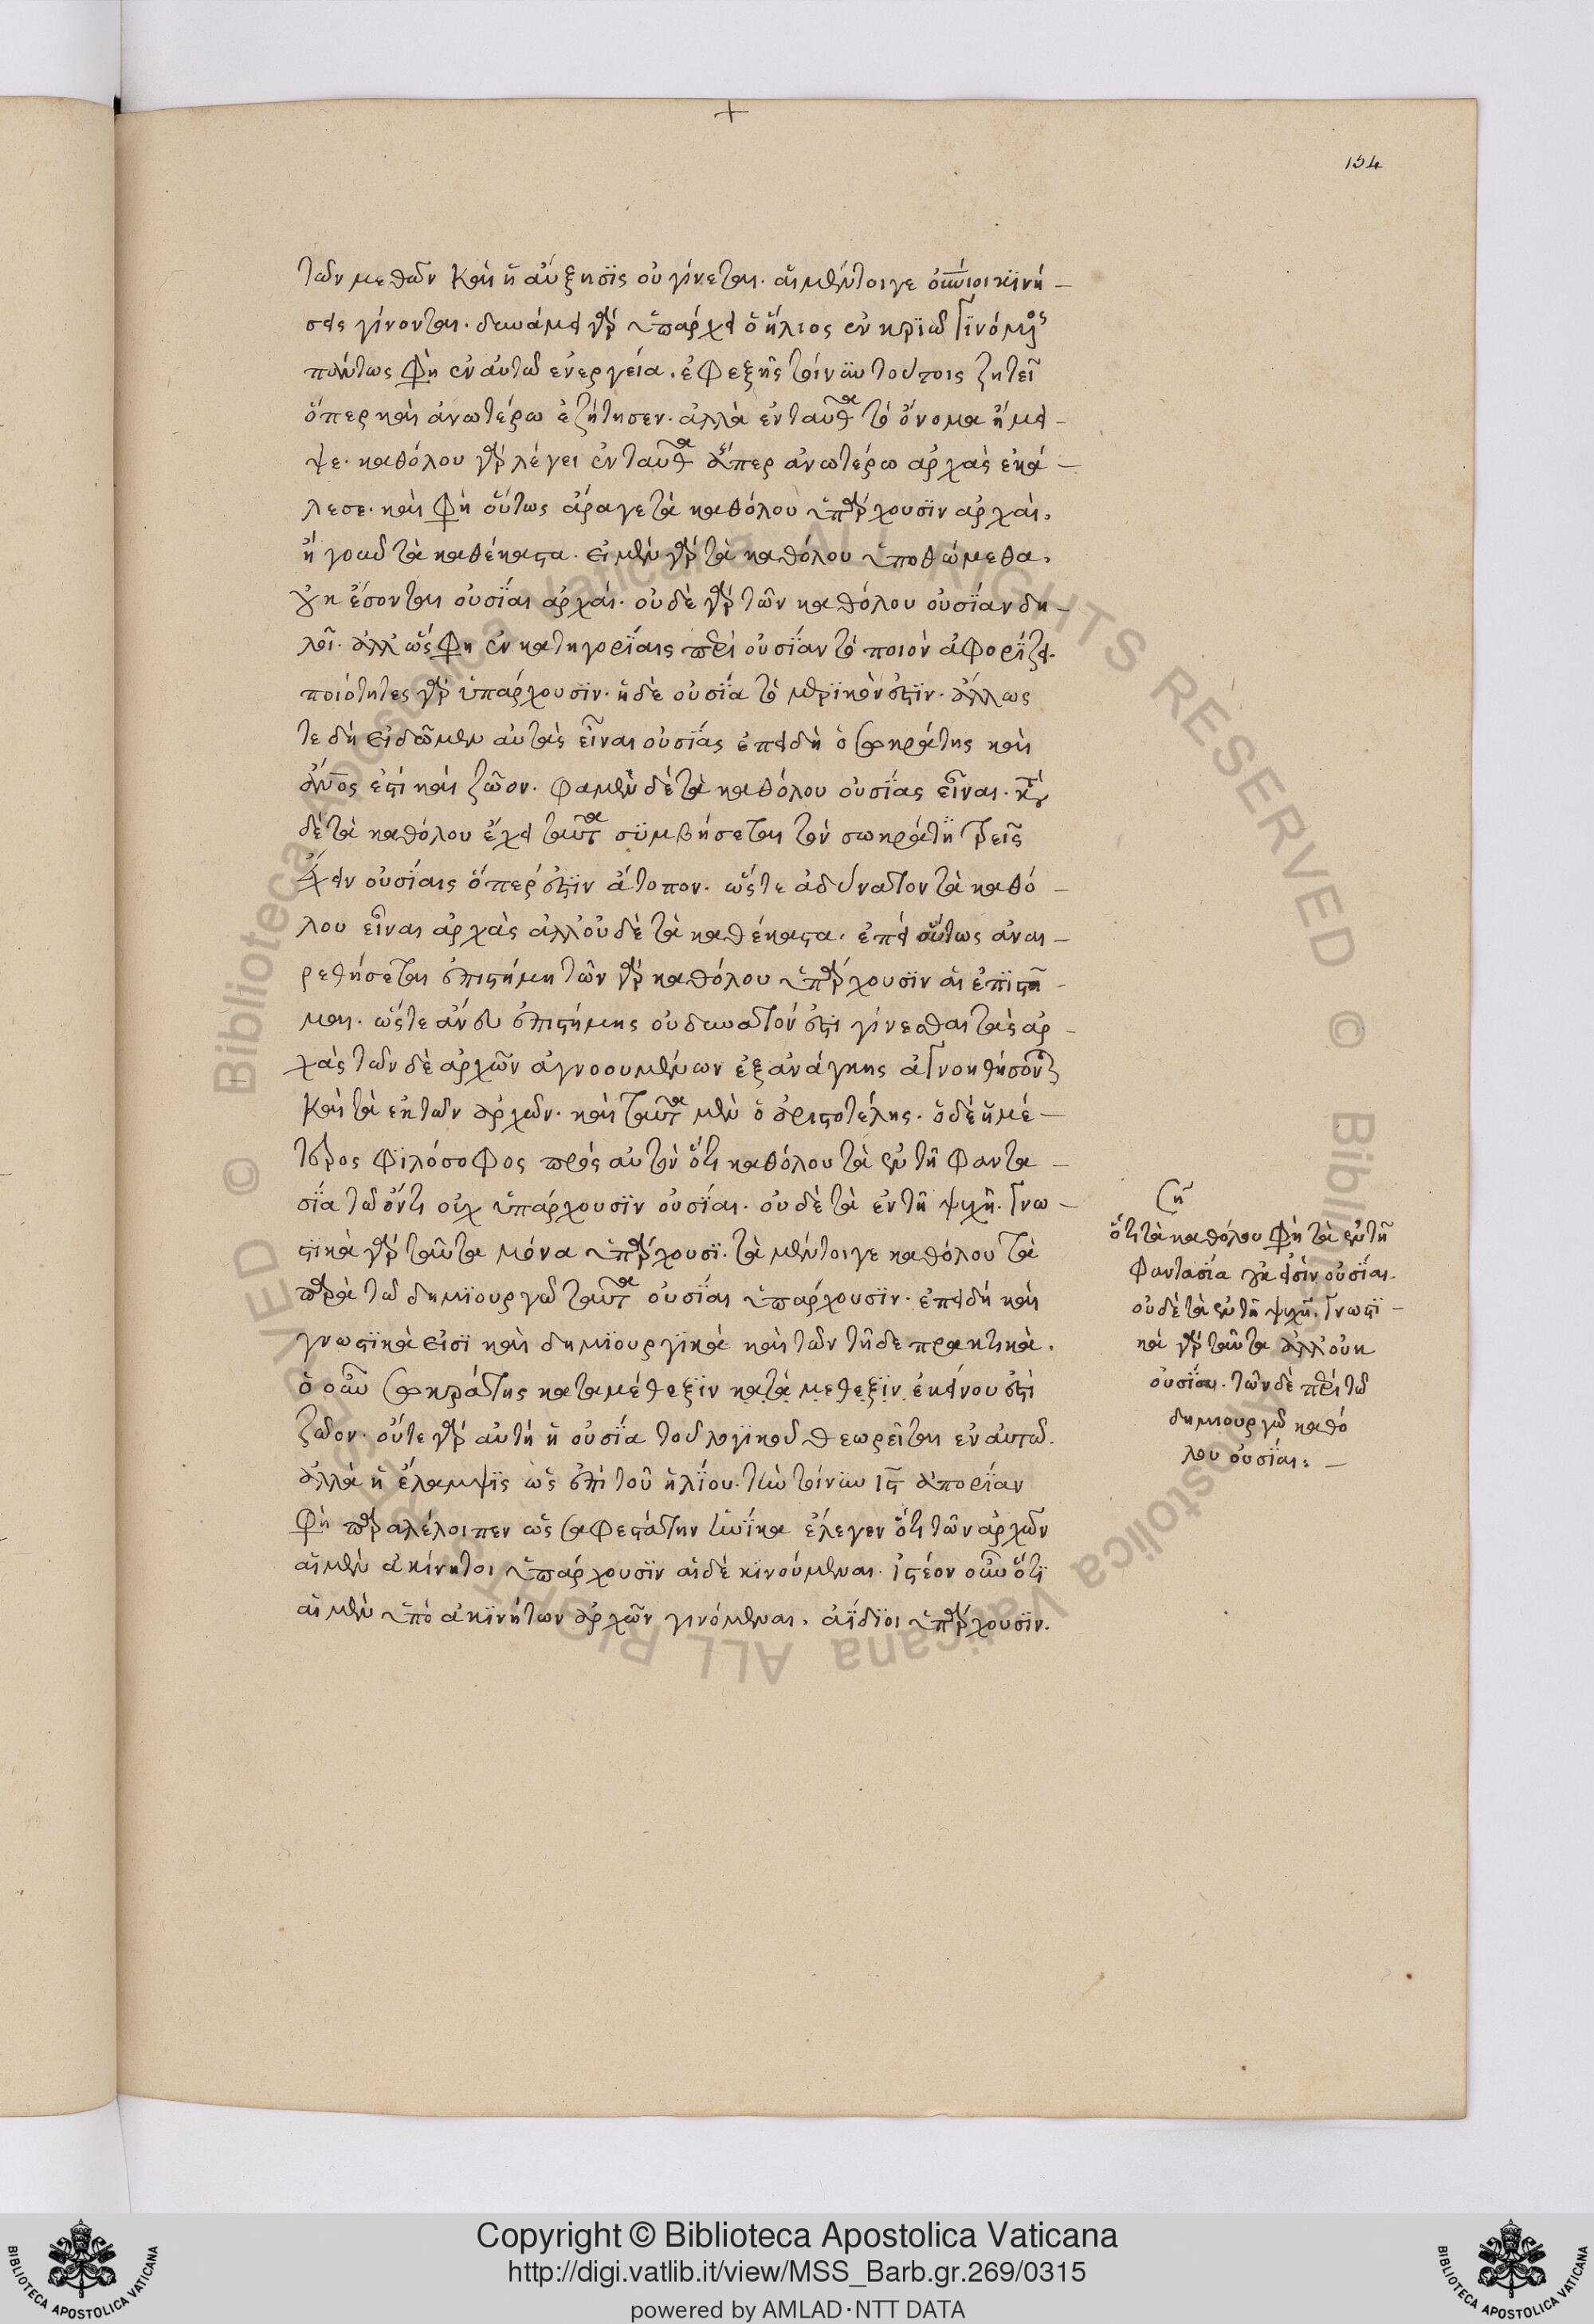 134
τῶν μεθῶν καὶ ἡ αὔξησις οὐ γίνεται. αἱ μέντοιγε κινή-
σεις γίνονται. δυνάμει γὰρ ὑπάρχει ὁ ἥλιος ἐν κριῶ γινόμενος
πάντως φη ἐν αὐτῶ ἐνεργεία. ἐφεξῆς τοίνυν τούτοις ζητεῖ
ὅπερ καὶ ἀνωτέρω ἐζήτησεν. ἀλλὰ ἐνταῦθα τὸ ὄνομα ἤμει-
ψε. καθόλου γὰρ λέγει ἐνταῦθα ἅπερ ἀνωτέρω ἀρχὰς ἐκά-
λεσε. καὶ φη οὕτως ἆραγε τὰ καθόλου ὑπάρχουσιν ἀρχαὶ.
ἢ γοῦν τὰ καθέκαστα. εἰ μὲν γὰρ τὰ καθόλου ὑποθώμεθα.
οὐκ ἔσονται οὐσίαι ἀρχαί. οὐδὲ γὰρ τῶν καθόλου οὐσίαν δη-
λοῖ. ἀλλ' ὥς φη ἐν κατηγορίαις περὶ οὐσίαν τὸ ποιὸν ἀφορίζει.
ποιότητες γὰρ ὑπάρχουσιν. ἡ δὲ οὐσία τὸ μερικόν ἐστιν. ἄλλως
τε δὴ εἰ δῶμεν αὐτὰς εἶναι οὐσίας ἐπειδὴ ὁ σωκράτης καὶ
ἄνος ἐστὶ καὶ ζῶον. φαμὲν δὲ τὰ καθόλου οὐσίας εἶναι.
δὲ τὰ καθόλου ἔχει ταῦτα συμβήσεται τὸν σωκράτη τρεῖς
ἔχειν οὐσίαις ὅπερ ἐστὶν ἄτοπον. ὥστε ἀδύνατον τὰ καθό-
λου εἶναι ἀρχὰς ἀλλ' οὐδὲ τὰ καθέκαστα. ἐπεὶ οὕτως ἀναι-
ρεθήσεται ἐπιστήμη τῶν γὰρ καθόλου ὑπάρχουσιν αἱ ἐπιστῆ-
μαι. ὥστε ἄνευ ἐπιστήμης οὐ δυνατόν ἐστι γίνεσθαι τὰς ἀρ-
χὰς τῶν δὲ ἀρχῶν ἀγνοουμένων ἐξανάγκης ἀγνοηθήσονται
καὶ τὰ ἐκ τῶν ἀρχῶν. καὶ ταῦτα μὲν ὁ ἀριστοτέλης. ὁ δὲ ἡμέ-
τερος φιλόσοφος πρὸς αὐτὸν ὅτι καθόλου τὰ ἐν τῆ φαντα-
σία τῶ ὄντι οὐχ ὑπάρχουσιν οὐσίαι. οὐδὲ τὰ ἐν τῆ ψυχῆ. γνω-
στικὰ γὰρ ταῦτα μόνα ὑπάρχουσι. τὰ μέντοιγε καθόλου τὰ
παρὰ τῶ δημιουργῶ ταῦτα οὐσίαι ὑπάρχουσιν. ἐπειδὴ καὶ
γνωστικὰ εἰσὶ καὶ δημιουργικὰ καὶ τῶν τῆδε πρακτικὰ.
ὁ οὖν σωκράτης καταμέθεξιν κατὰ μεθεξιν ἐκείνου ἐστὶ
ζῶον. οὔτε γὰρ αὐτὴ ἡ οὐσία τοῦ λογικοῦ θεωρεῖται ἐν αὐτῶ.
ἀλλὰ ἡ ἔλαμψις ὡς ἐπὶ τοῦ ἡλίου. τὴν τοίνυν ις ἀπορίαν
φη παραλέλοιπεν ὡς σαφεστάτην ἡνίκα ἔλεγεν ὅτι τῶν ἀρχῶν
αἱ μὲν ἀκίνητοι ὑπάρχουσιν αἱ δὲ κινούμεναι. ἰστέον οὖν ὅτι
αἱ μὲν ὑπὸ ἀκινήτων ἀρχῶν γινόμεναι. ἀΐδιοι ὑπάρχουσιν.
ση
ὅτι τὰ καθόλου φη τὰ ἐν τῆ
φαντασία οὐκ εἰσὶν οὐσίαι.
οὐδὲ τὰ ἐν τῆ ψυχῆ. γνωστι-
κὰ γὰρ ταῦτα ἀλλ' οὐκ
οὐσίαι. τῶν δὲ παρὰ τῶ
δημιουργῶ καθό
λου οὐσίαι: -
Copyright © Biblioteca Apostolica Vaticana
http://digi.vatlib.it/view/MSS_Barb.gr.269/0315
powered by AMLAD·NTT DATA